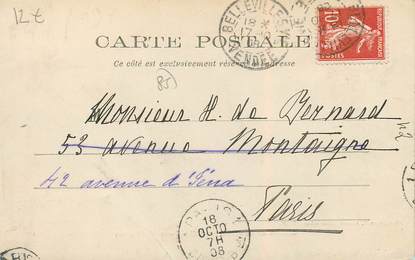 12€
BELLEVILLE
18
VENDÉE
10
CARTE POSTALE
Ce côté est exclusivement réservé à l'adresse
85
Monsieur H. de Bernard
53 avenue Montaigne
42 avenue d'Iéna
Paris
18
OCTO
7H
08